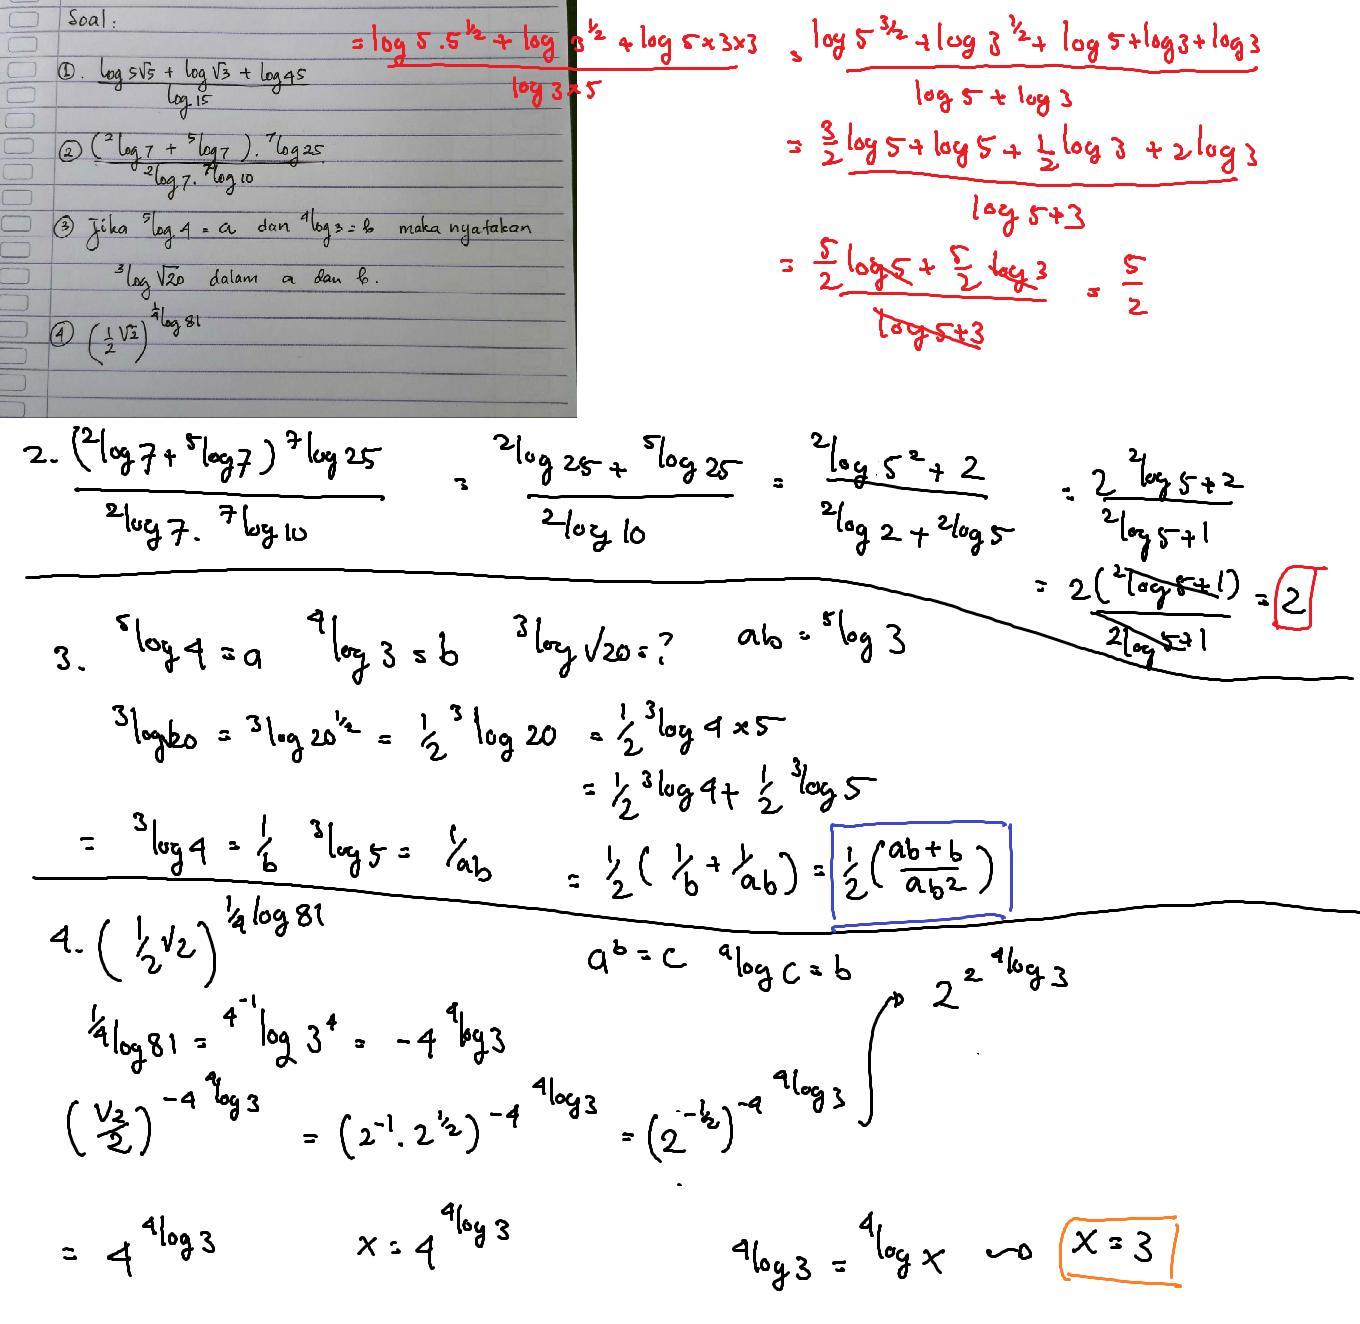 Soal:
① log 5√5 + log √3 + log 45
log 15
② (²log 7 + ⁵log 7) . ⁷log 25
²log 7 . ⁷log 10
③ Jika ⁵log 4 = a dan ⁴log 3 = b maka nyatakan
³log √20 dalam a dan b.
④ (1/2 √2)^(¼log 81)
= log 5.5^½ + log 3^½ + log 5×3×3
log 3×5
= log 5^3/2 + log 3^½ + log 5 + log 3 + log 3
log 5 + log 3
= 3/2 log 5 + log 5 + 1/2 log 3 + 2 log 3
log 5+3
= 5/2 log 5 + 5/2 log 3 = 5/2
log 5+3
2. (²log 7 + ⁵log 7) ⁷log 25 = ²log 25 + ⁵log 25 = ²log 5² + 2 = 2 ²log 5 + 2
²log 7. ⁷log 10 ²log 10 ²log 2 + ²log 5 ²log 5 + 1
= 2(²log 5 + 1) = 2
²log 5 + 1
3. ⁵log 4 = a ⁴log 3 = b ³log √20 = ? ab = ⁵log 3
³log√20 = ³log 20^½ = 1/2 ³log 20 = 1/2 ³log 4×5
= 1/2 ³log 4 + 1/2 ³log 5
= ³log 4 = 1/b ³log 5 = 1/ab = 1/2 (1/b + 1/ab) = 1/2 (ab+b / ab2)
4. (1/2 √2)^(¼log 81)
a^b = c ᵃlog c = b
¼log 81 = 4^-1 log 3⁴ = -4 ⁴log 3
2^(2 ⁴log 3)
(√2/2)^(-4 ⁴log 3) = (2^-1 . 2^½)^(-4 ⁴log 3) = (2^-½)^(-4 ⁴log 3)
= 4^(⁴log 3) x = 4^(⁴log 3) ⁴log 3 = ⁴log x x = 3